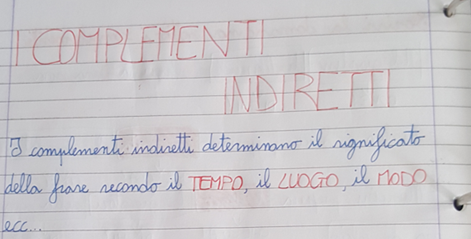 I COMPLEMENTI
INDIRETTI
I complementi indiretti determinano il significato
della frase secondo il TEMPO, il LUOGO, il MODO
ecc...